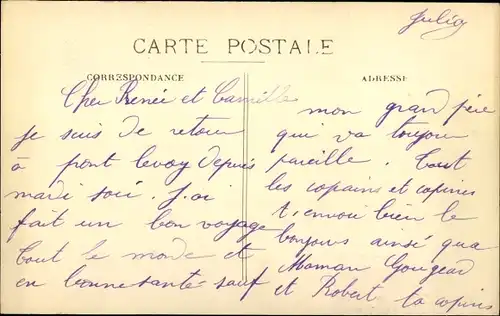 Julia
CARTE POSTALE
CORRESPONDANCE
ADRESSE
Cher Renée et Camille
je suis de retour
à pont levoy depuis
mardi soir. J.ai
fait un bon voyage
tout le monde et
en bonne santé sauf
mon grand père
qui va toujour
pareille. tout
les copains et copines
t.envoie bien le
bonjous ainsé qua
Maman Gougeas
et Robert ta copine